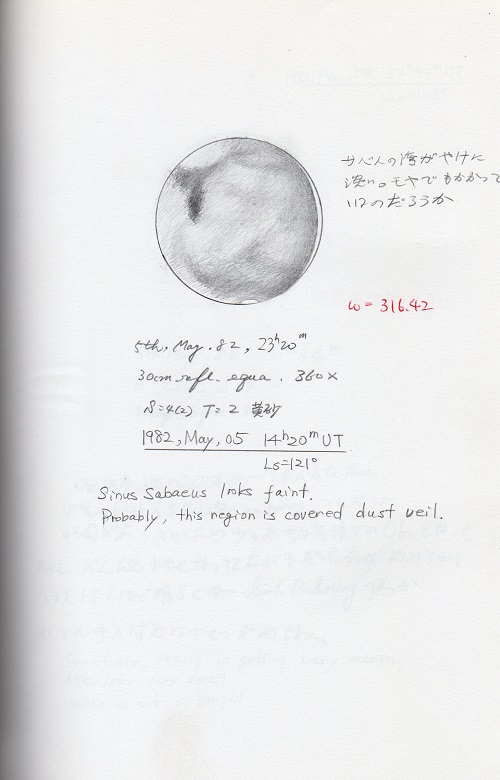 サバ人の湾がやけに
淡い。モヤでもかかって
いるのだろうか
ω = 316.42
5th, May. 82, 23h20m
30cm refl. equa. 360x
S=4(2) T=2 黄砂
1982, May, 05 14h20m UT
Ls=121°
Sinus Sabaeus looks faint.
Probably, this region is covered dust veil.